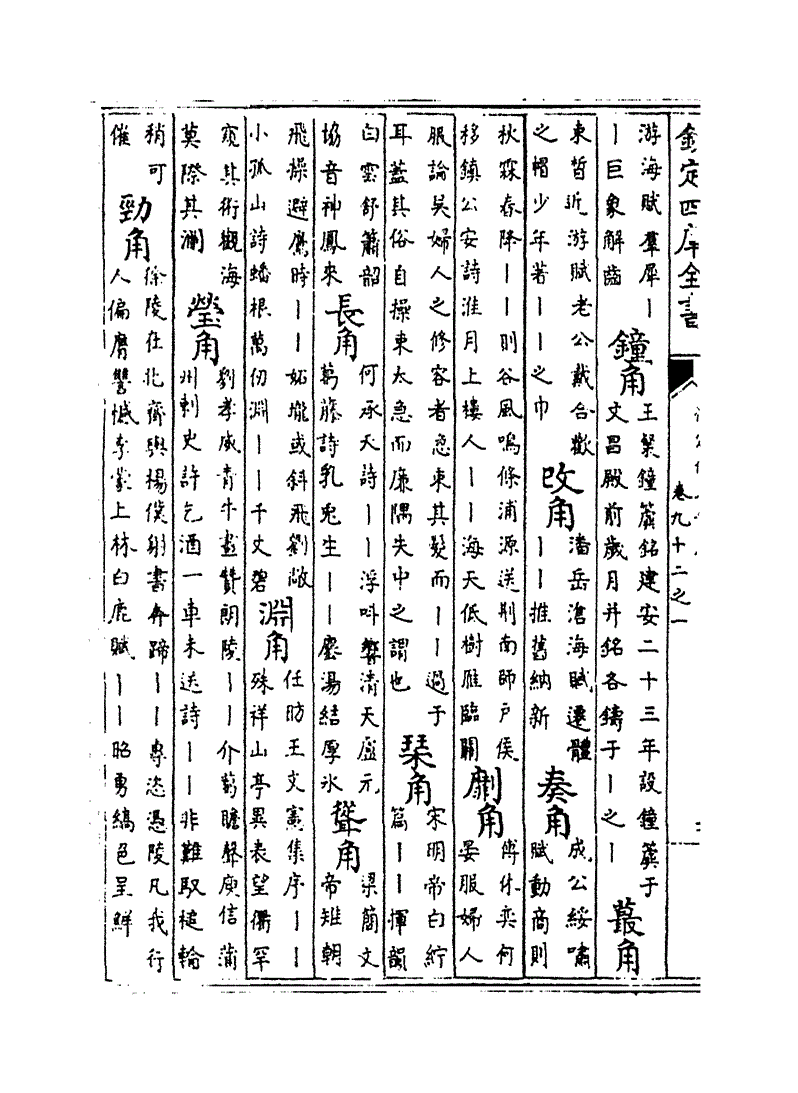 欽定四庫全書
卷九十二之一
游海賦羣犀丨
丨巨象解齒
鐘角
王粲鐘簴銘建安二十三年設鐘簴于
文昌殿前歲月并銘各鑄于丨之丨
蕞角
束晳近游賦老公戴合歡
之帽少年著丨丨之巾
改角
潘岳滄海賦遷體
丨丨推舊納新
奏角
成公綏嘯
賦動商則
秋霖春降丨丨則谷風鳴條浦源送荆南師戸侯
移鎮公安詩淮月上樓人丨丨海天低樹雁臨關
劘角
傅休奕何
晏服婦人
服論吴婦人之修容者急束其髮而丨丨過于
耳葢其俗自操束太急而廉隅失中之謂也
琹角
宋明帝白紵
篇丨丨揮韻
白雲舒簫韶
協音神鳳來
長角
何承天詩丨丨浮呌響清天盛元
萬藤詩乳兎生丨丨塵湯結厚氷
聳角
梁簡文
帝雉朝
飛操避鷹時丨丨妬壠或斜飛劉敞
小孤山詩蟠根萬仞淵丨丨千丈碧
淵角
任昉王文憲集序丨丨
殊祥山亭異表望衢罕
窺其術觀海
莫際其瀾
瑩角
劉孝威青牛畫贊朗陵丨丨介葛瞻聲庾信蒲
州刺史許乞酒一車未送詩丨丨非難馭槌輪
稍可
催
勁角
徐陵在北齊與楊僕射書奔蹄丨丨專恣憑陵凡我行
人偏膺讐憾李蒙上林白鹿賦丨丨昭勇縞色呈鮮